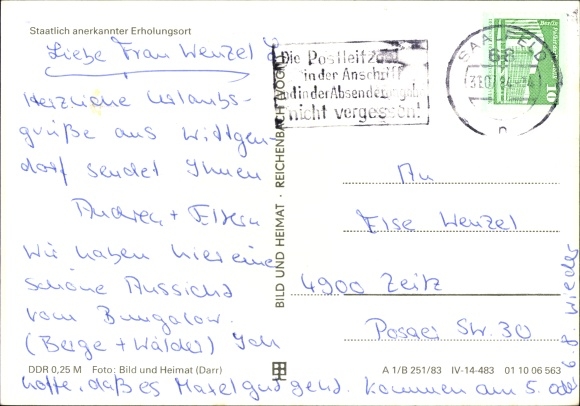 Staatlich anerkannter Erholungsort
Liebe Frau Wenzel
Herzliche Urlaubs-
grüße aus Wittgen-
dorf sendet Ihnen
Andrea + Eltern
Wir haben hier eine
schöne Aussicht
vom Bungalow.
(Berge + Wälder) Ich
hoffe, daß es Maxel gut geht. Kommen am 5. oder
6.8. wieder
DDR 0,25 M Foto: Bild und Heimat (Darr)
BILD UND HEIMAT · REICHENBACH (VOGTL)
Die Postleitzahl
in der Anschrift
und in der Absenderangabe
nicht vergessen!
SAALFELD
68
DDR
10
An
Else Wenzel
4900 Zeitz
Posaer Str. 30
A 1/B 251/83 IV-14-483 01 10 06 563